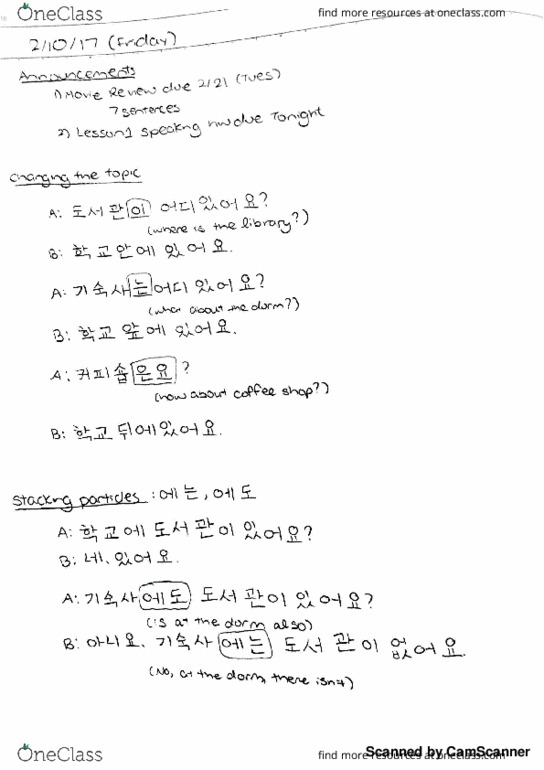 OneClass
find more resources at oneclass.com
2/10/17 (Friday)
Announcements
1) Movie Review due 2/21 (Tues)
7 sentences
2) Lesson 1 speaking hw due Tonight
changing the topic
A: 도서관이 어디 있어요?
(where is the library?)
B: 학교 안에 있어요.
A: 기숙사는 어디 있어요?
(what about the dorm?)
B: 학교 앞에 있어요.
A: 커피숍은요?
(how about coffee shop?)
B: 학교 뒤에 있어요.
stacking particles : 에는, 에도
A: 학교에 도서관이 있어요?
B: 네, 있어요.
A: 기숙사에도 도서관이 있어요?
(is at the dorm also)
B: 아니요. 기숙사에는 도서관이 없어요.
(No, at the dorm, there isn't)
Scanned by CamScanner
OneClass
find more resources at oneclass.com